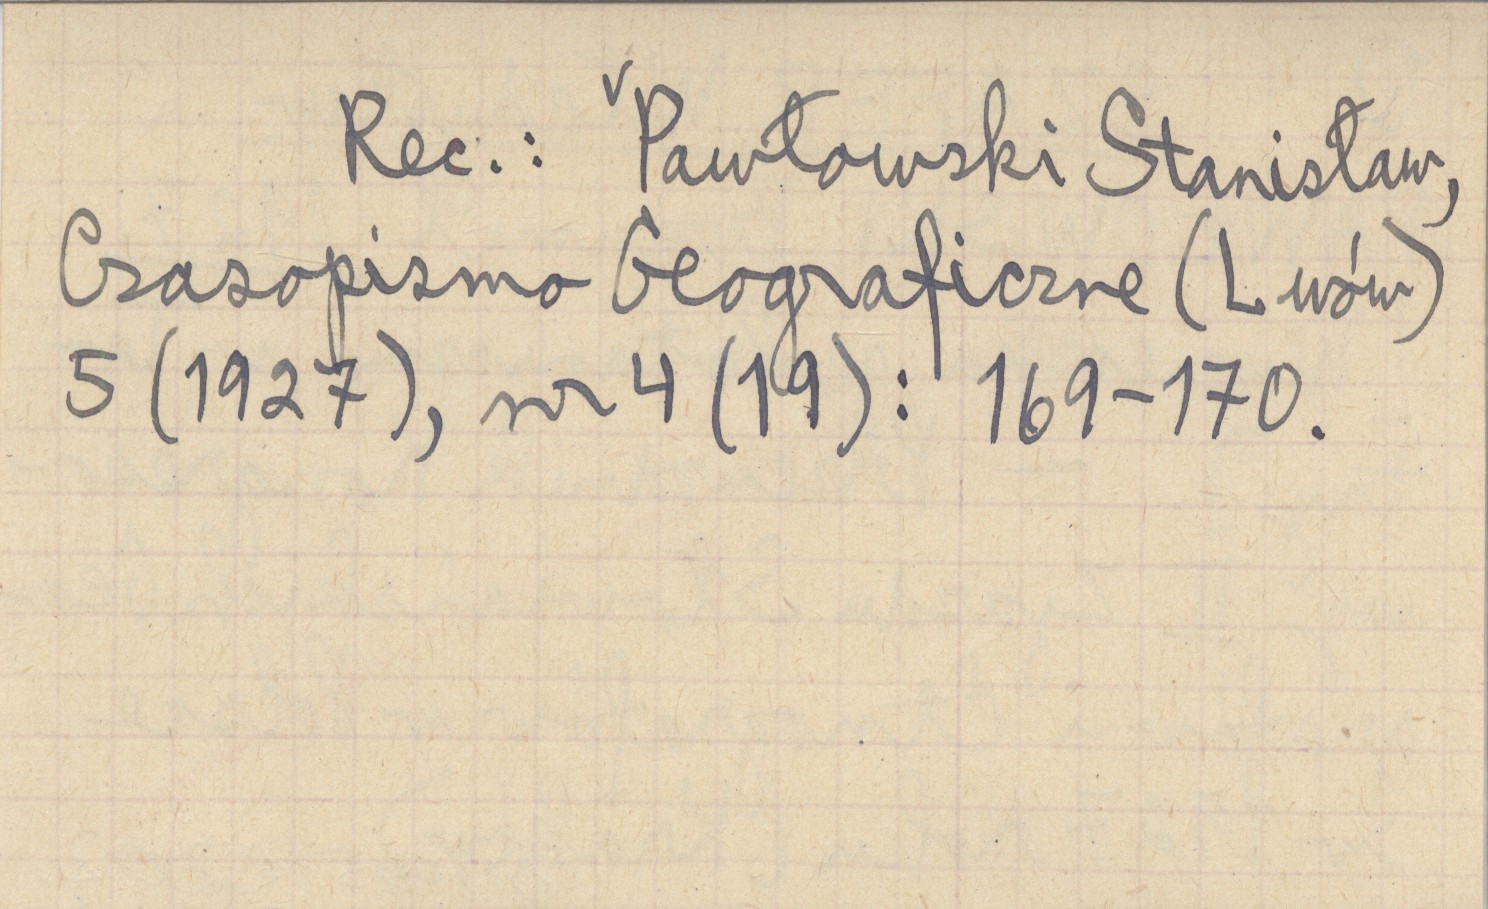 Rec.: ᵛPawłowski Stanisław,
Czasopismo Geograficzne (Lwów)
5 (1927), nr 4 (19): 169-170.